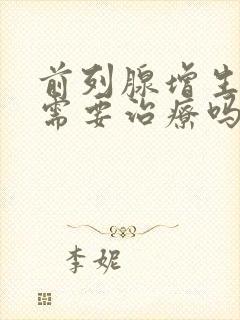 前列腺增生
需要治疗吗
李妮